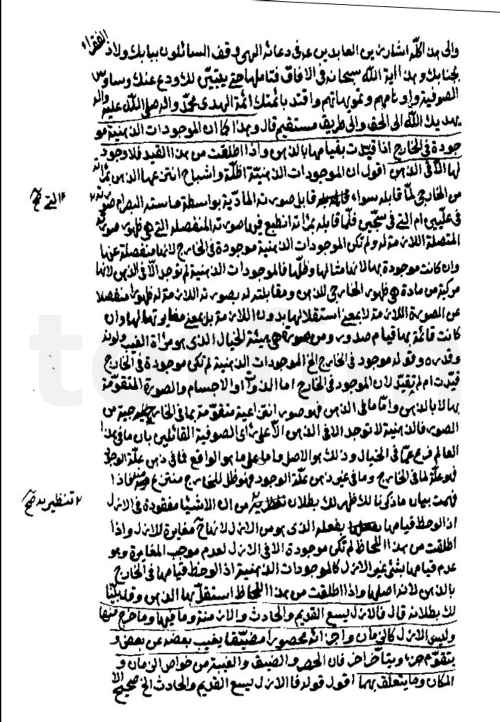 والى هذا كله اشار زين العابدين عه فى دعائه الهى وقف السائلون ببابك ولاذ الفقراء
بجنابك وهذا اية الله سبحانه فى الافاق فتاملها حتى يقين لك ودع عنك وساوس
الصوفية واوهامهم وتمويهاتهم واقتد بائمتك ائمة الهدى محمد واله صلى الله عليه واله
يهديك الله الى الحق والى طريق مستقيم قال وهذا كما ان الموجودات الذهنية مو
جودة فى الخارج اذا قيدت بقيامها بالذهن واذا اطلقت من هذا القيد فلا وجود
لها الا فى الذهن اقول ان الموجودات الذهنية اظلة واشباح انتزعها الذهن بمراته
من الخارجى لما قابله سواء قابل صورته المادية بواسطة حاسته البصر ام صورته
فى عليين ام التى فى سجين فلما قابله بمراته انطبع فيها صورته المنفصله التى هى ظهور صورته
المتصلة اللازمة له ولم تكن الموجودات الذهنية موجودة فى الخارج لانها منفصلة عنها
وان كانت موجودة بها لانها مثالها وظلها فالموجودات الذهنية لم توجد الا فى الذهن لانها
مركبة من مادة هى ظهور الخارجى للذهن ومقابلته له بصورته اللازمة له ظهورا منفصلا
عن الصورة اللازمة لا بمعنى استقلالها بدون اللازمة بل بمعنى مغايرتها لها وان
كانت قائمة بها قيام صدور ومن صورة هى هيئة الخيال الذى هو مرآة الغيب ولونه
وقدره وقوله موجود فى الخارج الخ الموجودات الذهنية لم تكن موجودة فى الخارج
قيدت ام لم تقيد لان الموجود فى الخارج اما الذوات او الاجسام والصورة المتقومة
بها لا بالذهن واما ما فى الذهن فهو صورة انتزاعية متقومة بما فى الخارج خارجية من
الصور فالذهنية لا توجد الا فى الذهن الا على رأى الصوفية القائلين بان ما فى هذا
العالم فرع عما فى الخيال وذلك هو الاصل واما على ما هو الواقع فما فى ذهن علة الوجود
فهو علة لما فى الخارج وما فى غير ذهن علة الوجود فهو ظل للخارج منتزع منه فاذا
فهمت بيان ما ذكرنا لك ظهر لك بطلان من ان الاشياء مفقودة فى الازل
اذ الوحظ قيامها بفعله الذى هو من الازل لانها ح مغايرة للازل واذا
اطلقت من هذا اللحاظ لم تكن موجودة الا فى الازل لعدم موجب المغايرة وهو
عدم قيامها بشئ غير الازل كالموجودات الذهنية اذ الوحظ قيامها فى الخارج
بالذهن لانه اصلها واذا اطلقت من هذا اللحاظ استقل بها الذهن وقد بينا
لك بطلانه قال فالازل يسع القديم والحادث والازمنة وما فيها وما خرج عنها
وليس الازل كالزمان واجزائه محصورا مضيقا يغيب بعضه عن بعض و
يتقدم جزء ويتأخر اخر فان الحصر والضيق والغيبة من خواص الزمان و
المكان وما يتعلق بهما اقول قوله فالازل يسع القديم والحادث الخ صحيح الا
التى صح
تنظيره صح